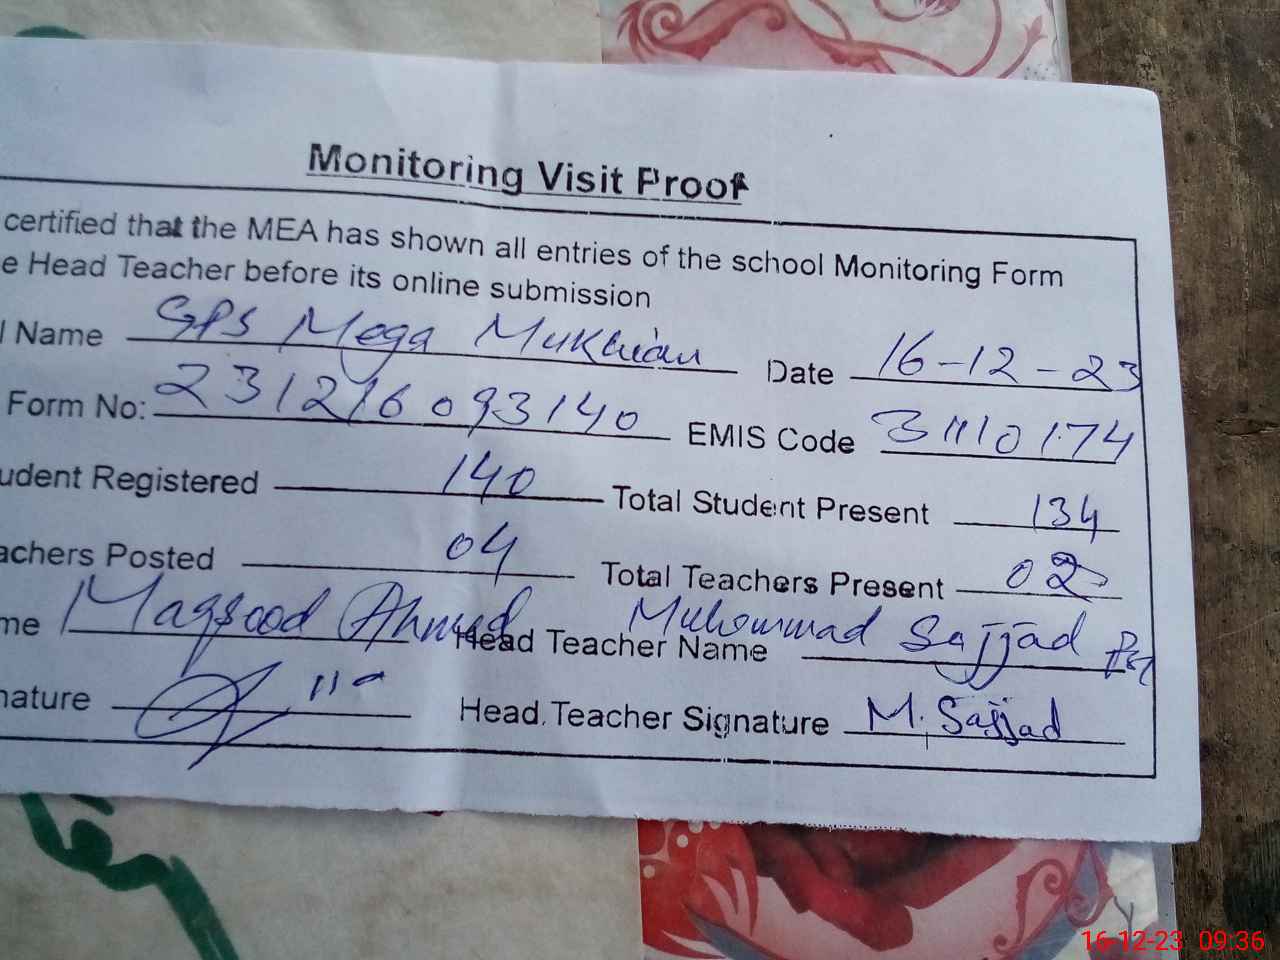 Monitoring Visit Proof
certified that the MEA has shown all entries of the school Monitoring Form
e Head Teacher before its online submission
l Name GPS Mega Mukhian Date 16-12-23
Form No: 231216093140 EMIS Code 31110174
udent Registered 140 Total Student Present 134
achers Posted 04 Total Teachers Present 02
me Maqsood Ahmed Head Teacher Name Muhammad Sajjad PST
nature Head Teacher Signature M. Sajjad
16-12-23 09:36